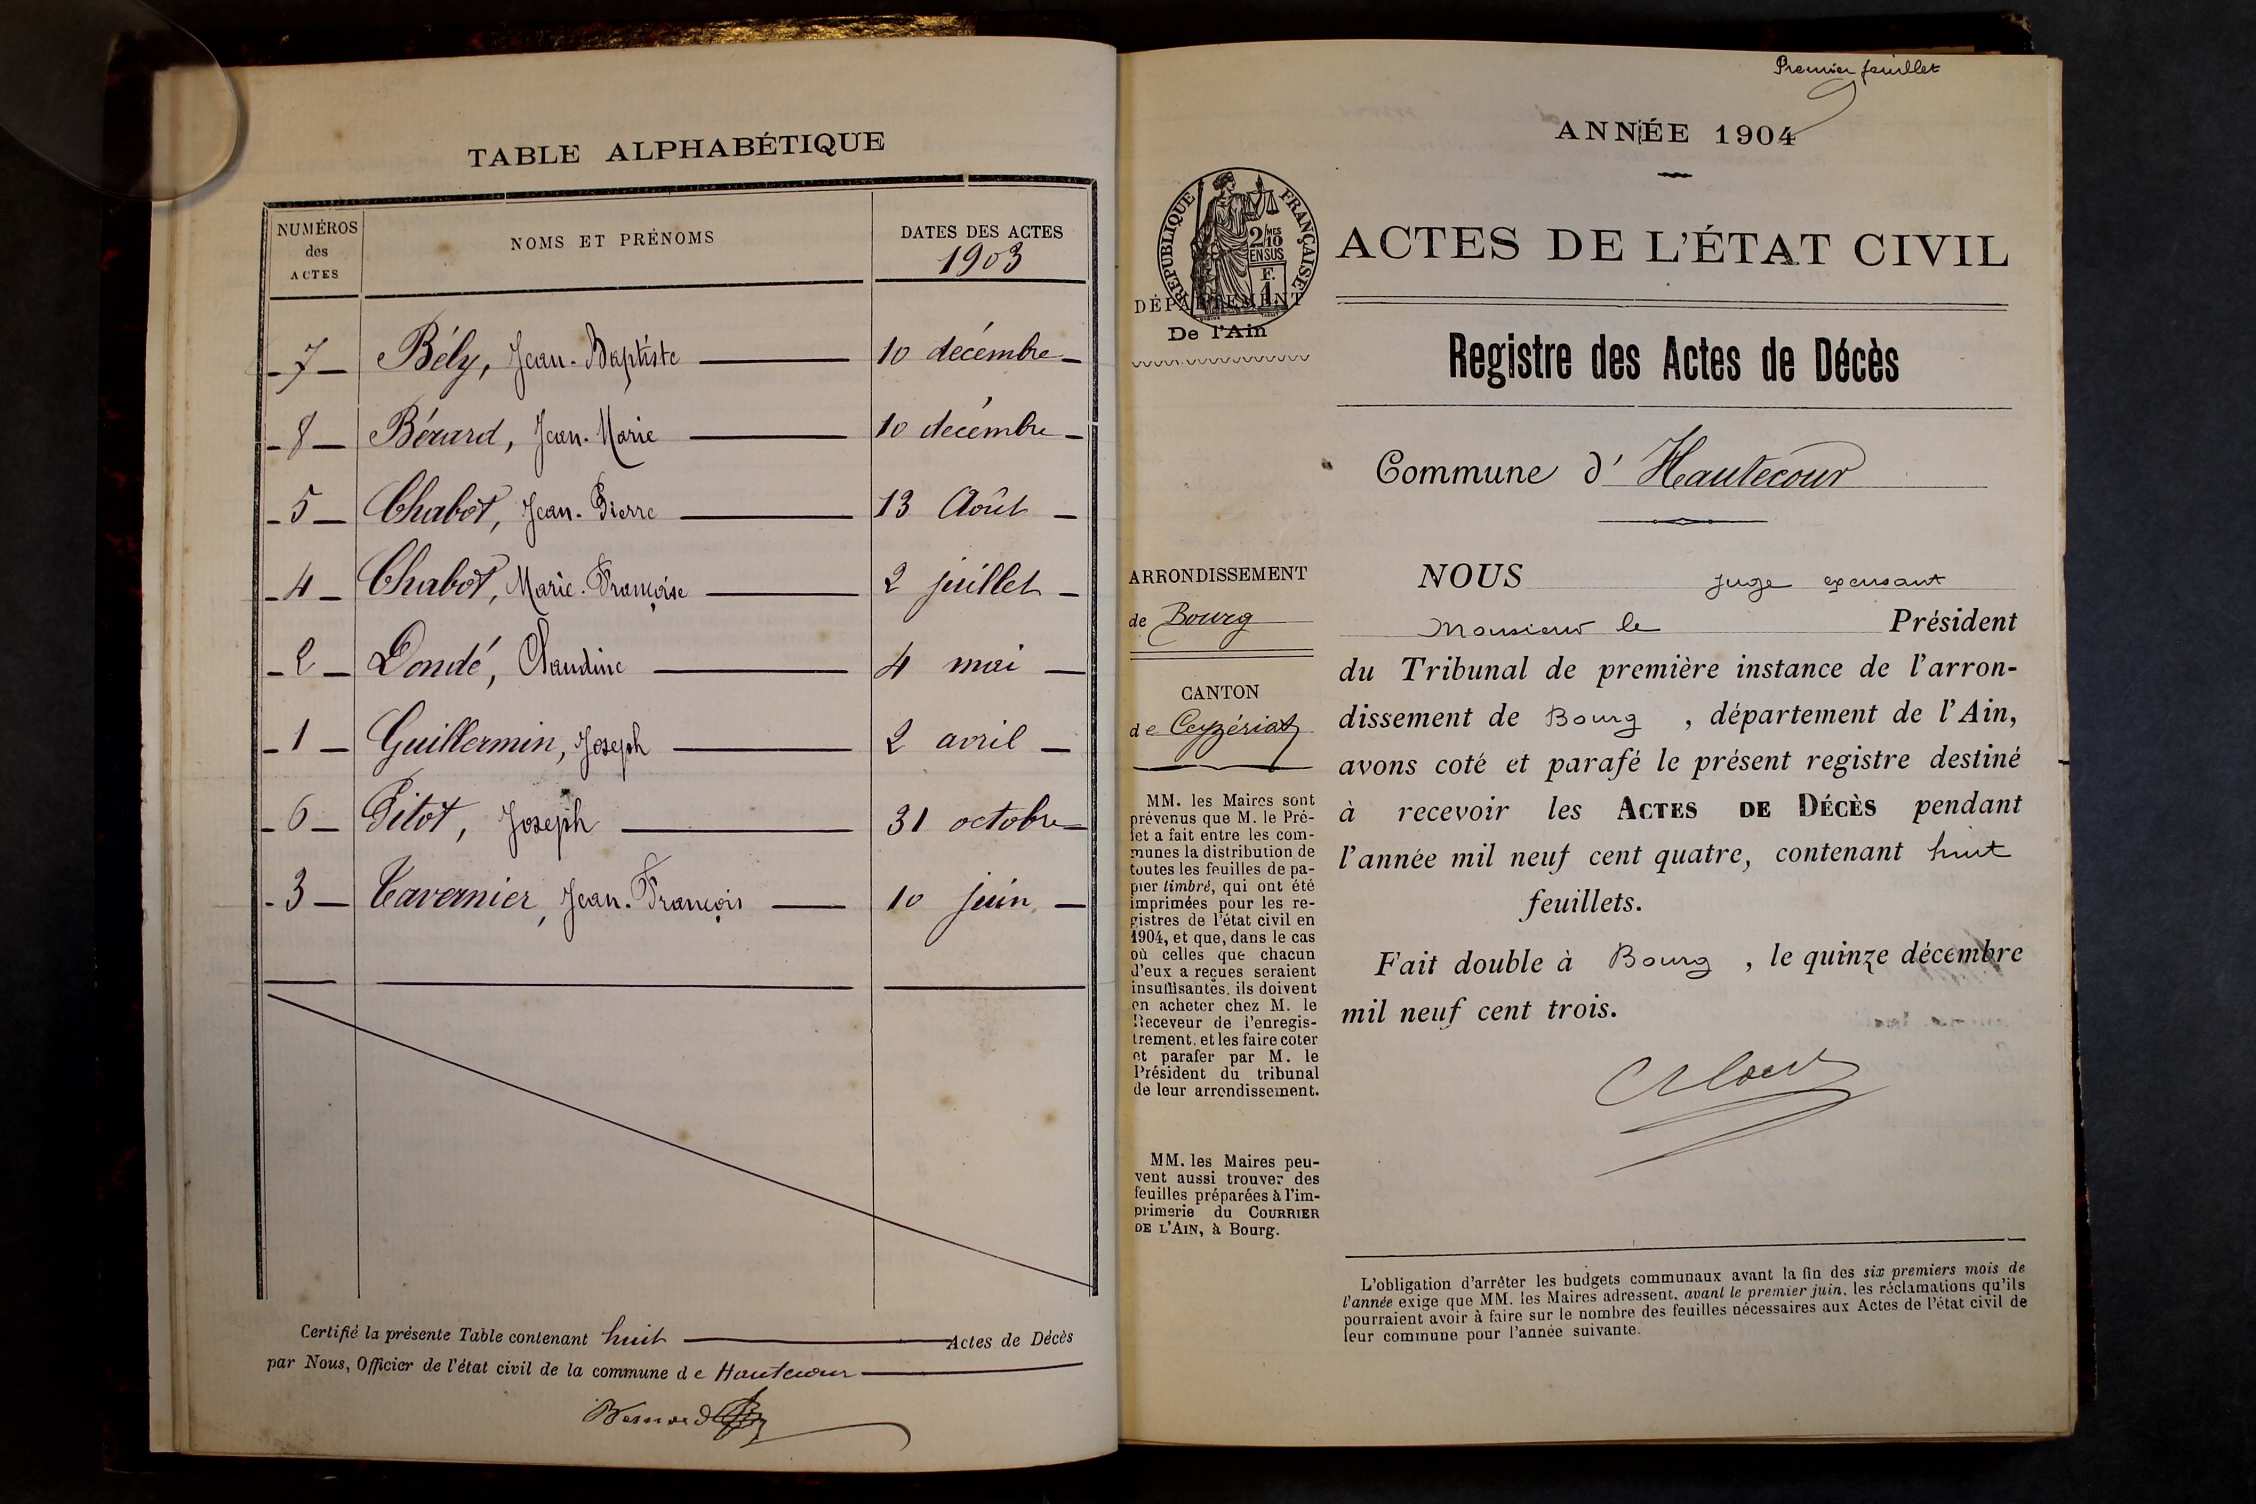 TABLE ALPHABÉTIQUE
NUMÉROS des ACTES
NOMS ET PRÉNOMS
DATES DES ACTES
1903
- 7 - Bély, Jean-Baptiste 10 décembre -
- 8 - Bérard, Jean-Marie 10 décembre -
- 5 - Chabot, Jean-Pierre 13 Août -
- 4 - Chabot, Marie-Françoise 2 juillet -
- 2 - Dondé, Claudine 4 mai -
- 1 - Guillermin, Joseph 2 avril -
- 6 - Pitot, Joseph 31 octobre -
- 3 - Tavernier, Jean-François 10 juin -
Certifié la présente Table contenant huit Actes de Décès
par Nous, Officier de l'état civil de la commune de Hautecour
Premier feuillet
ANNÉE 1904
RÉPUBLIQUE FRANÇAISE
2/10MES
EN SUS
F.
1
DÉPARTEMENT
De l'Ain
ACTES DE L'ÉTAT CIVIL
Registre des Actes de Décès
Commune d'Hautecour
ARRONDISSEMENT
de Bourg
CANTON
de Ceyzériat
MM. les Maires sont
prévenus que M. le Pré-
fet a fait entre les com-
munes la distribution de
toutes les feuilles de pa-
pier timbré, qui ont été
imprimées pour les re-
gistres de l'état civil en
1904, et que, dans le cas
où celles que chacun
d'eux a reçues seraient
insuffisantes, ils doivent
en acheter chez M. le
Receveur de l'enregis-
trement, et les faire coter
et parafer par M. le
Président du tribunal
de leur arrondissement.
MM. les Maires peu-
vent aussi trouver des
feuilles préparées à l'im-
primerie du COURRIER
DE L'AIN, à Bourg.
NOUS juge expensant
Monsieur le Président
du Tribunal de première instance de l'arron-
dissement de Bourg, département de l'Ain,
avons coté et parafé le présent registre destiné
à recevoir les ACTES DE DÉCÈS pendant
l'année mil neuf cent quatre, contenant huit
feuillets.
Fait double à Bourg, le quinze décembre
mil neuf cent trois.
L'obligation d'arrêter les budgets communaux avant la fin des six premiers mois de
l'année exige que MM. les Maires adressent, avant le premier juin, les réclamations qu'ils
pourraient avoir à faire sur le nombre des feuilles nécessaires aux Actes de l'état civil de
leur commune pour l'année suivante.